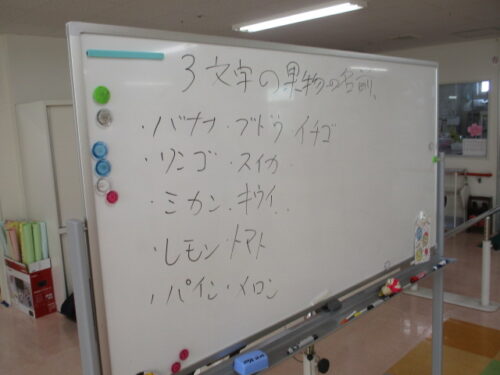 3文字の果物の名前、
・バナナ ・ブドウ イチゴ
・リンゴ ・スイカ
・ミカン ・キウイ
・レモン ・トマト
・パイン ・メロン